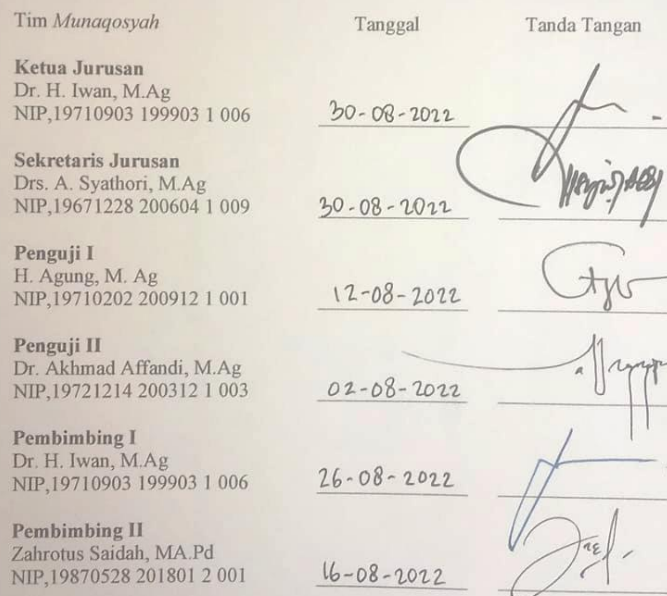 Tim Munaqosyah Tanggal Tanda Tangan
Ketua Jurusan
Dr. H. Iwan, M.Ag
NIP,19710903 199903 1 006 30-08-2022
Sekretaris Jurusan
Drs. A. Syathori, M.Ag
NIP,19671228 200604 1 009 30-08-2022
Penguji I
H. Agung, M. Ag
NIP,19710202 200912 1 001 12-08-2022
Penguji II
Dr. Akhmad Affandi, M.Ag
NIP,19721214 200312 1 003 02-08-2022
Pembimbing I
Dr. H. Iwan, M.Ag
NIP,19710903 199903 1 006 26-08-2022
Pembimbing II
Zahrotus Saidah, MA.Pd
NIP,19870528 201801 2 001 16-08-2022